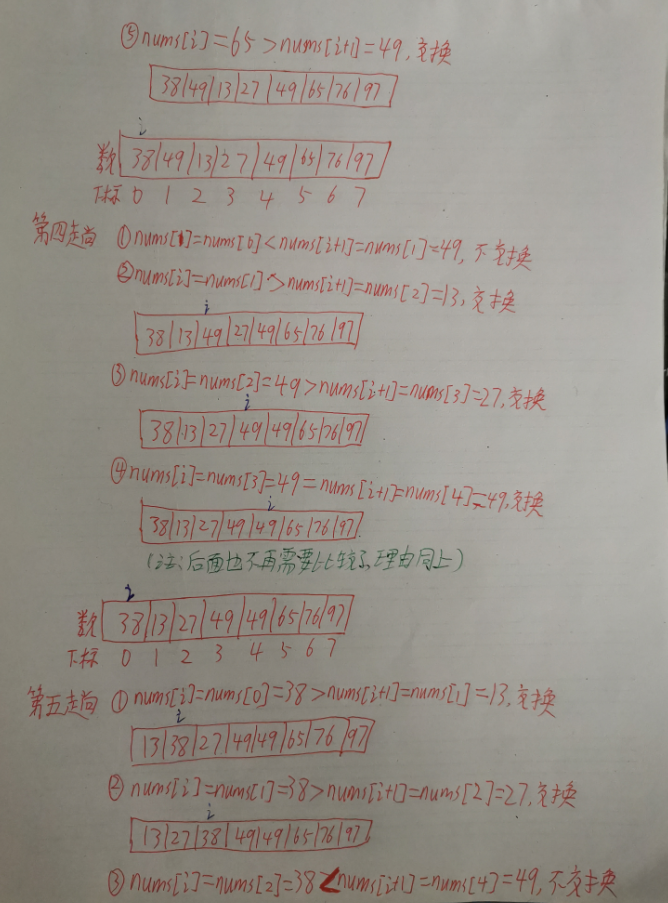 ⑤nums[i]=65>nums[i+1]=49,交换
38|49|13|27|49|65|76|97
i
数 38|49|13|27|49|65|76|97
下标 0 1 2 3 4 5 6 7
第四走尚 ①nums[0]=nums[0]<nums[i+1]=nums[1]=49,不交换
②nums[i]=nums[1]>nums[i+1]=nums[2]=13,交换
i
38|13|49|27|49|65|76|97
③nums[i]=nums[2]=49>nums[i+1]=nums[3]=27,交换
i
38|13|27|49|49|65|76|97
④nums[i]=nums[3]=49=nums[i+1]=nums[4]=49,交换
i
38|13|27|49|49|65|76|97
(注:后面也不再需要比较了,理由同上)
i
数 38|13|27|49|49|65|76|97
下标 0 1 2 3 4 5 6 7
第五走尚 ①nums[i]=nums[0]=38>nums[i+1]=nums[1]=13,交换
i
13|38|27|49|49|65|76|97
②nums[i]=nums[1]=38>nums[i+1]=nums[2]=27,交换
i
13|27|38|49|49|65|76|97
③nums[i]=nums[2]=38<nums[i+1]=nums[4]=49,不交换